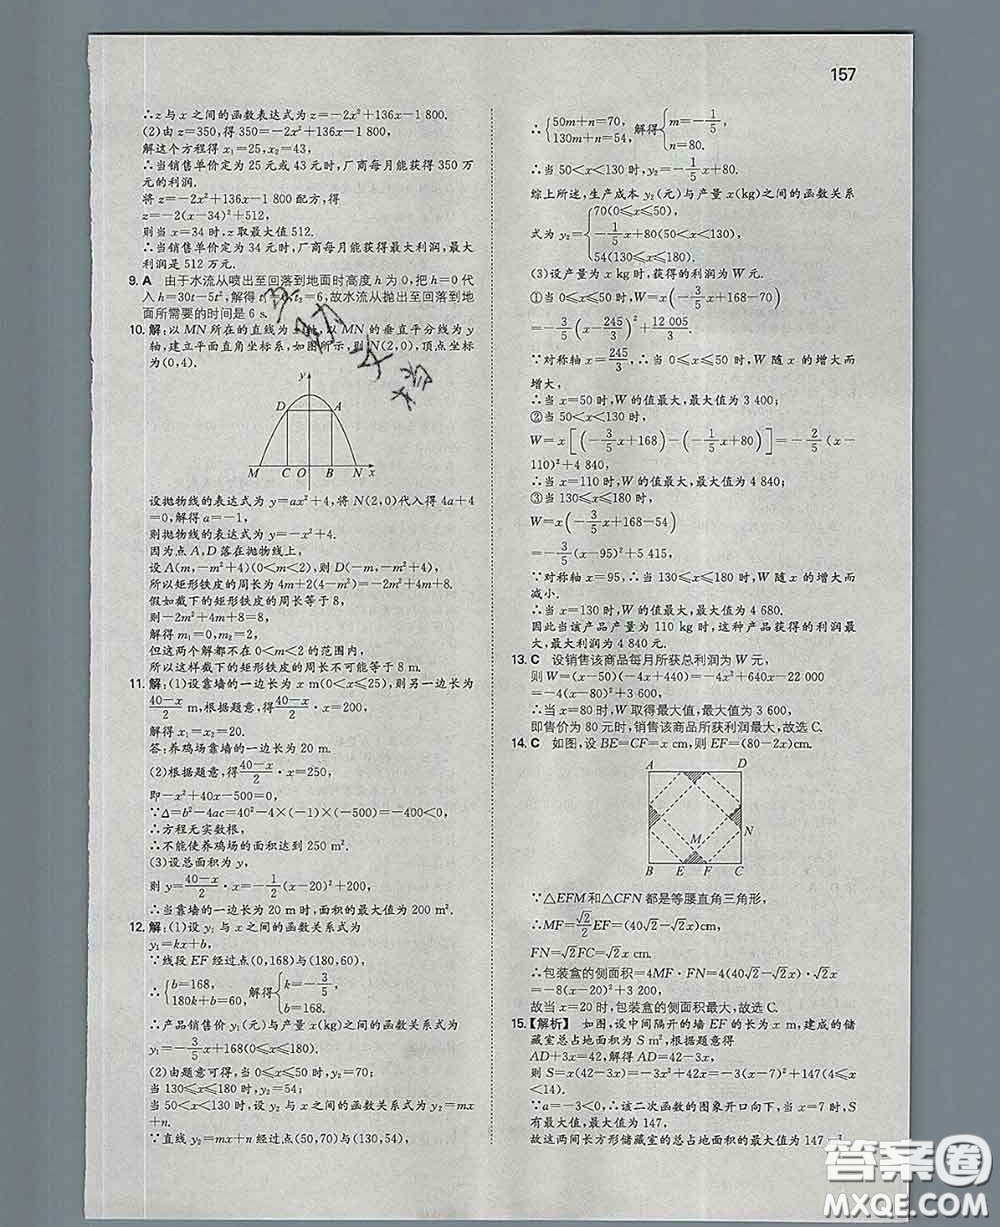 157
∴z与x之间的函数表达式为z=-2x²+136x-1 800.
(2)由z=350,得350=-2x²+136x-1 800,
解这个方程得x₁=25,x₂=43,
∴当销售单价定为25元或43元时,厂商每月能获得350万
元的利润.
将z=-2x²+136x-1 800配方,得
z=-2(x-34)²+512,
则当x=34时,z取最大值512.
∴当销售单价定为34元时,厂商每月能获得最大利润,最大
利润是512万元.
9. A 由于水流从喷出至回落到地面时高度h为0,把h=0代
入h=30t-5t²,解得 t₂=6,故水流从抛出至回落到地
面所需要的时间是6 s.
10. 解:以MN所在的直线为 轴,以MN的垂直平分线为y
轴,建立平面直角坐标系,如图所示,则N(2,0),顶点坐标
为(0,4).
y
D A
M C O B N x
设抛物线的表达式为y=ax²+4,将N(2,0)代入得4a+4
=0,解得a=-1,
则抛物线的表达式为y=-x²+4.
因为点A,D落在抛物线上,
设A(m,-m²+4)(0<m<2),则D(-m,-m²+4),
所以矩形铁皮的周长为4m+2(4-m²)=-2m²+4m+8.
假如截下的矩形铁皮的周长等于8,
则-2m²+4m+8=8,
解得m₁=0,m₂=2,
但以上两解都不在0<m<2的范围内,
所以这样截下的矩形铁皮的周长不可能等于8 m.
11. 解:(1)设靠墙的一边长为x m(0<x≤25),则另一边长为
(40-x)/2 m,根据题意,得(40-x)/2·x=200,
解得x₁=x₂=20.
答:养鸡场靠墙的一边长为20 m.
(2)根据题意,得(40-x)/2·x=250,
即-x²+40x-500=0,
∵Δ=b²-4ac=40²-4×(-1)×(-500)=-400<0,
∴方程无实数根,
∴不能使养鸡场的面积达到250 m².
(3)设总面积为y,
则y=(40-x)/2·x=-1/2(x-20)²+200,
∴当靠墙的一边长为20 m时,面积的最大值为200 m².
12. 解:(1)设y₁与x之间的函数关系式为
y₁=kx+b,
∵线段EF经过点(0,168)与(180,60),
∴{b=168, 180k+b=60, 解得{k=-3/5, b=168.
∴产品销售价y₁(元)与产量x(kg)之间的函数关系式为
y₁=-3/5x+168(0≤x≤180).
(2)由题意可得,当0≤x≤50时,y₂=70;
当130≤x≤180时,y₂=54;
当50<x<130时,设y₂与x之间的函数关系式为y₂=mx
+n.
∵直线y₂=mx+n经过点(50,70)与(130,54),
∴{50m+n=70, 130m+n=54, 解得{m=-1/5, n=80.
∴当50<x<130时,y₂=-1/5x+80.
综上所述,生产成本y₂(元)与产量x(kg)之间的函数关系
式为y₂={70(0≤x≤50), -1/5x+80(50<x<130), 54(130≤x≤180).
(3)设产量为x kg时,获得的利润为W元.
①当0≤x≤50时,W=x(-3/5x+168-70)
=-3/5(x-245/3)²+12 005/3,
∵对称轴x=245/3,∴当0≤x≤50时,W随x的增大而
增大,
∴当x=50时,W的值最大,最大值为3 400;
②当50<x<130时,
W=x[(-3/5x+168)-(-1/5x+80)]=-2/5(x-
110)²+4 840,
∴当x=110时,W的值最大,最大值为4 840;
③当130≤x≤180时,
W=x(-3/5x+168-54)
=-3/5(x-95)²+5 415,
∵对称轴x=95,∴130≤x≤180时,W随x的增大而
减小.
∴当x=130时,W的值最大,最大值为4 680.
因此当该产品产量为110 kg时,这种产品获得的利润最
大,最大利润为4 840元.
13. C 设销售该商品每月所获总利润为W元,
则W=(x-50)(-4x+440)=-4x²+640x-22 000
=-4(x-80)²+3 600,
∴当x=80时,W取得最大值,最大值为3 600,
即售价为80元时,销售该商品所获利润最大,故选C.
14. C 如图,设BE=CF=x cm,则EF=(80-2x)cm.
A D
N
M
B E F C
∵△EFM和△CFN都是等腰直角三角形,
∴MF=√2/2EF=(40√2-√2x)cm,
FN=√2FC=√2x(cm),
∴包装盒的侧面积=4MF·FN=4(40√2-√2x)·√2x
=-8(x-20)²+3 200,
故当x=20时,包装盒的侧面积最大,故选C.
15. 【解析】 如图,设中间隔开的墙EF的长为x m,建成的储
藏室总占地面积为S m²,根据题意得
AD+3x=42,解得AD=42-3x,
则S=x(42-3x)=-3x²+42x=-3(x-7)²+147(4≤x
<14).
∵a=-3<0,∴该二次函数的图象开口向下,当x=7时,S
有最大值,最大值为147,
故这两间长方形储藏室的总占地面积的最大值为147 m²
答案圈
MXQE.COM